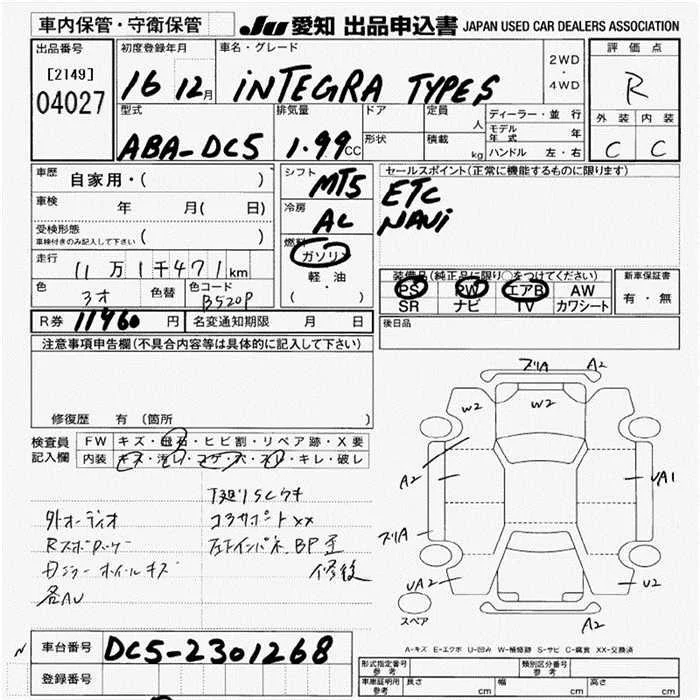 車内保管・守衛保管
JU 愛知 出品申込書 JAPAN USED CAR DEALERS ASSOCIATION
出品番号
[2149]
04027
初度登録年月
16 12月
車名・グレード
iNTEGRA TYPES
2WD
・
4WD
評価点
R
外装 内装
C C
型式
ABA-DC5
排気量
1.99CC
ドア
形状
定員
人
積載
kg
ディーラー・並行
モデル年式 年
ハンドル 左・右
車歴 自家用・( )
車検 年 月( 日)
受検形態
車検付きのみ記入して下さい ( )
走行 11万1千471km
色
色替
色コード
B520P
シフト
MT5
冷房
AC
燃料
ガソリン
軽・油
( ・ )
セールスポイント(正常に機能するものに限ります)
ETC
NAVi
装備品(純正品に限り○をつけてください)
PS PW エアB AW
SR ナビ TV カワシート
新車保証書
有・無
R券 11960円 名変通知期限 月 日
後日品
注意事項申告欄(不具合内容等は具体的に記入して下さい)
修復歴 有 (箇所 )
検査員 FW キズ・飛石・ヒビ割・リペア跡・X要
記入欄 内装 キズ・汚レ・コゲ・穴・スレ・キレ・破レ
外オーディオ
コアサポートXX
修後
A2
W2
W2
A2
UA1
UA2
U2
スペア
A2
A-キズ E-エクボ U-凹み W-補修跡 S-サビ C-腐食 XX-交換済
車台番号 DC5-2301268
登録番号
形式指定番号
参考
類別区分番号
参考
車庫証明用
参考
長さ cm 幅 cm 高さ cm